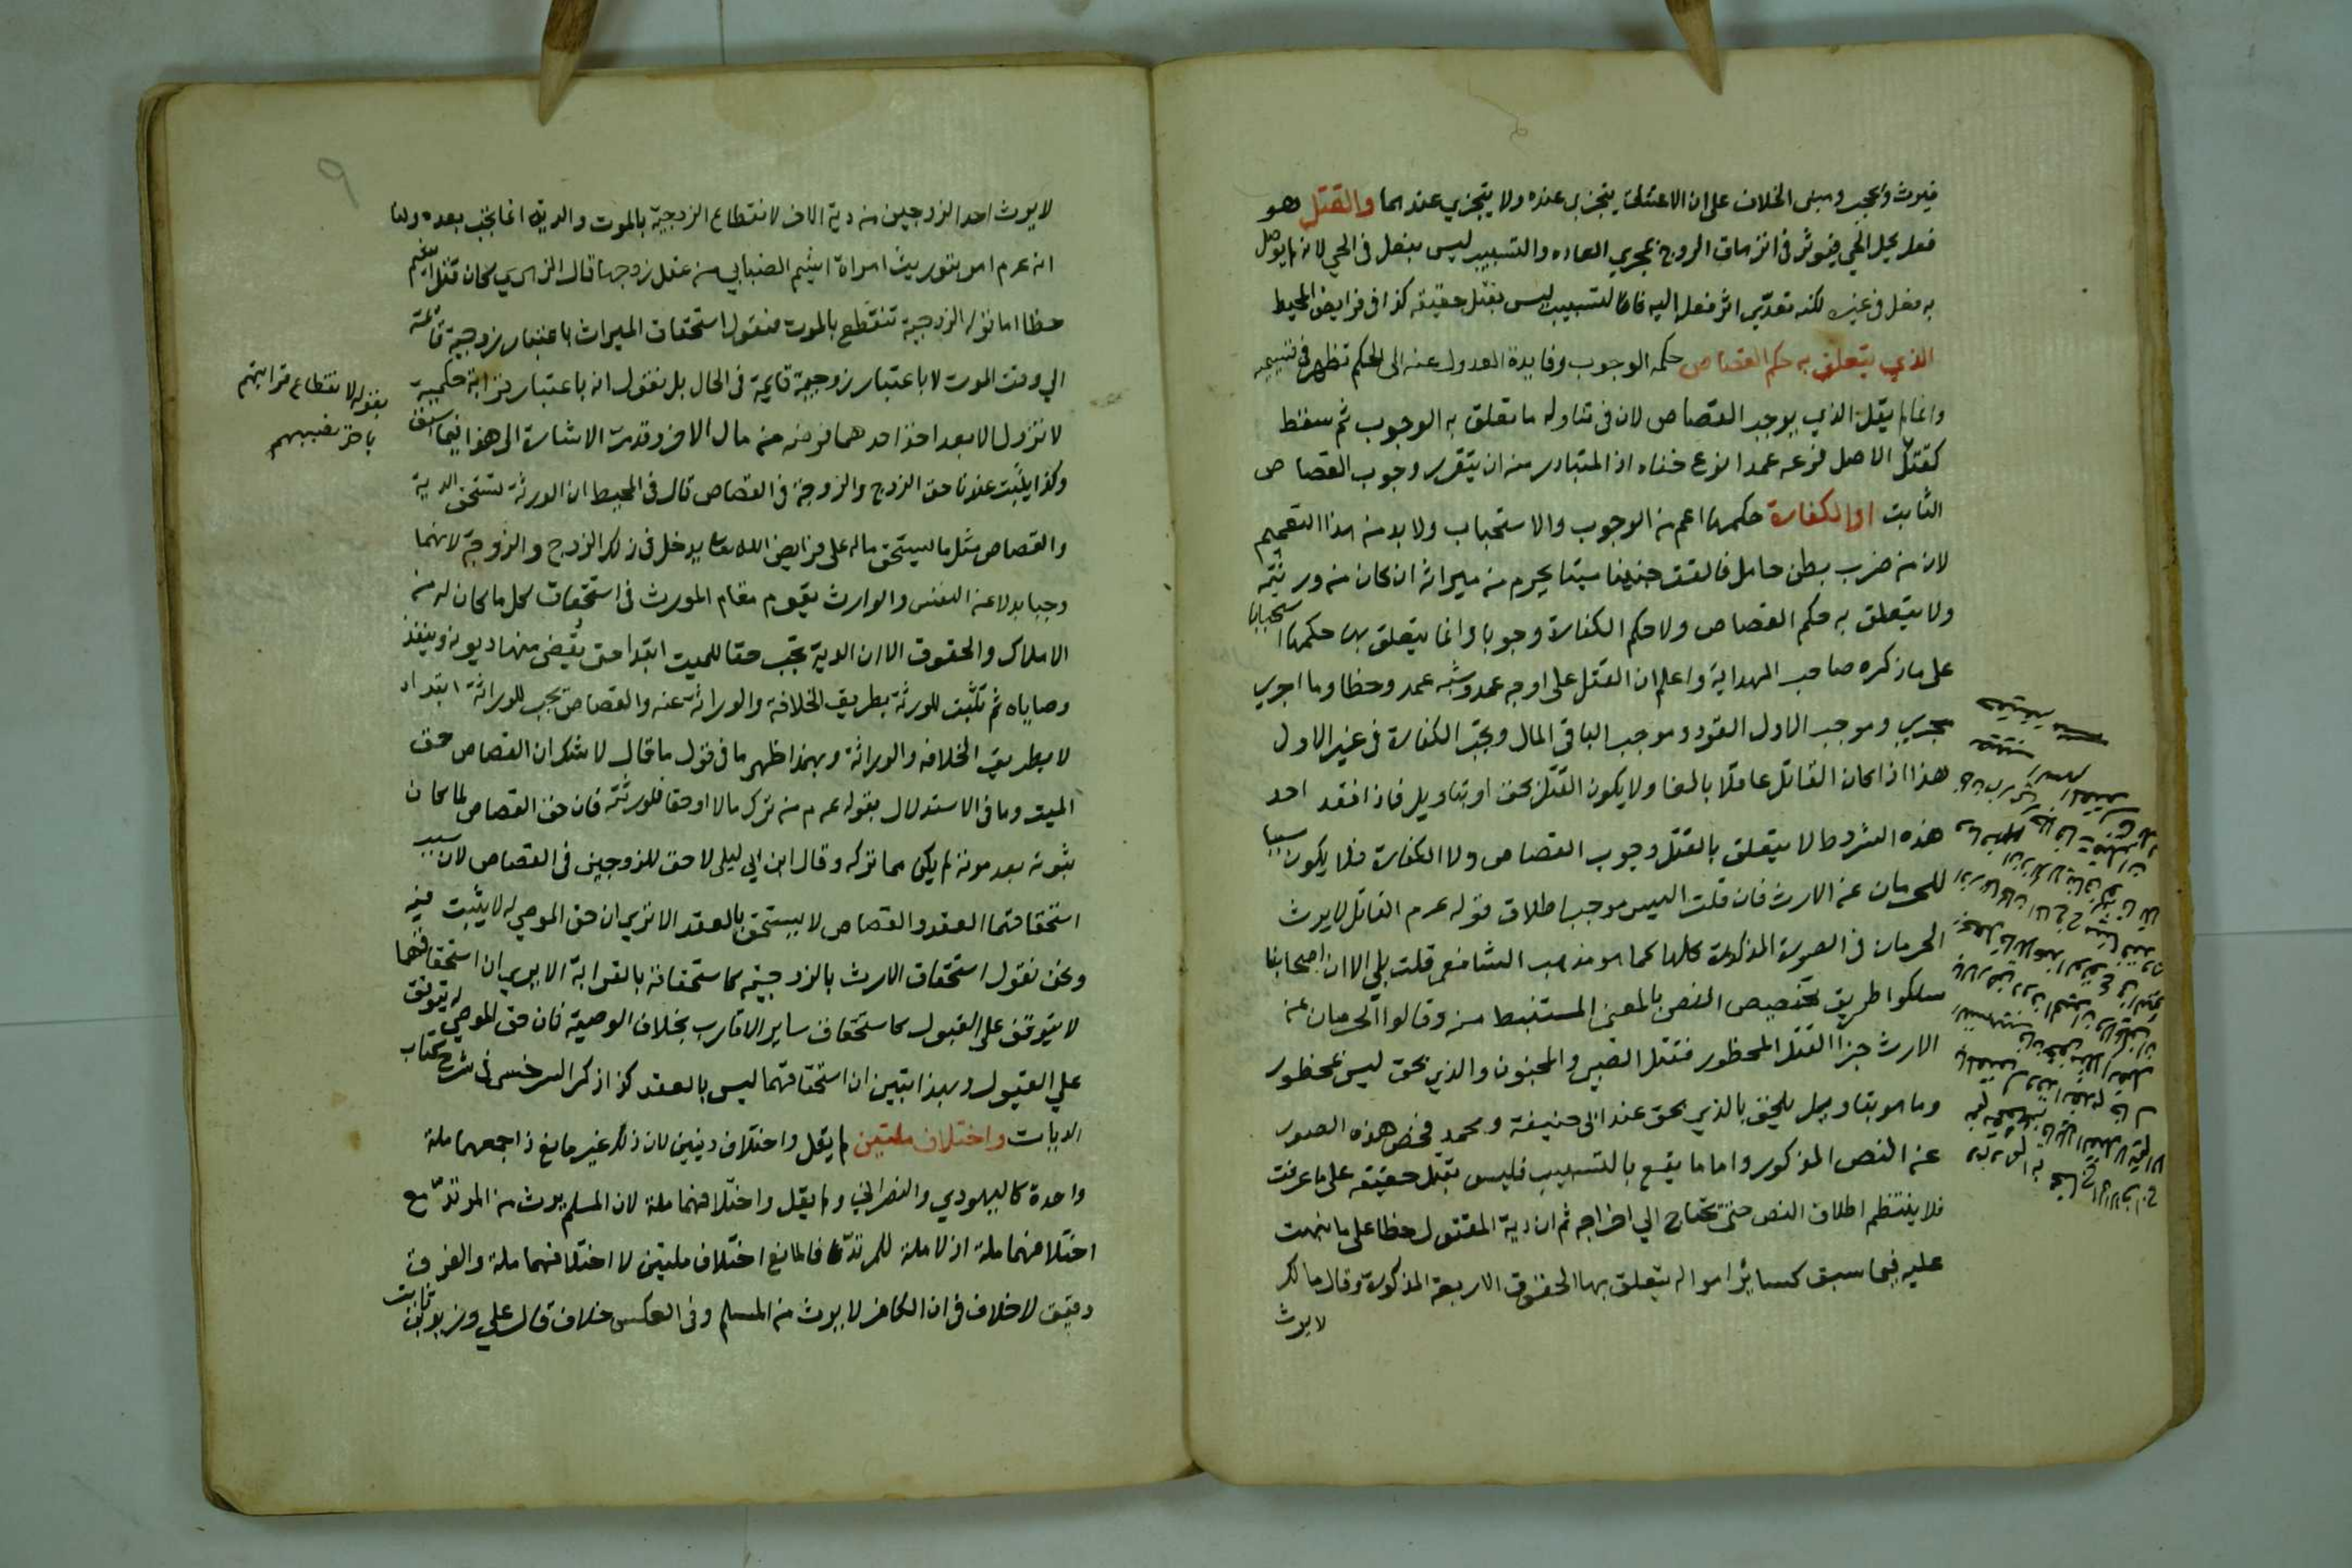 فيرث ويحجب ومبنى الخلاف على ان الاعتاق يتجزى عنده ولا يتجزي عندهما والقتل وهو
فعل يحل الحي فيؤثر في انزهاق الروح بمجري العاده والتسبيب ليس بفعل في الحي لانه لم يوصل
به فعل في غيره لكنه تعدّي اثر فعل اليه فالتسبيب ليس بقتل حقيقة كذا في فرايض المحيط
الذي يتعلق به حكم القصاص حكمه الوجوب وفايدة العدول عنه الى الحكم تظهر في قسيمه
وانما لم يقل الذي يوجب القصاص لان في تناوله ما تعلق به الوجوب ثم سقط
كقتل الاصل فرعه عمدا نوع خفاء اذ المتبادر منه ان يتقرر وجوب القصاص
الثابت او الكفارة حكمها اعم من الوجوب والاستحباب ولا بد من هذا التعميم
لان من ضرب بطن حامل فالقت جنينا ميتا يحرم من ميراثه ان كان من ورثته
ولا يتعلق به حكم القصاص ولا حكم الكفارة وجوبا وانما يتعلق به حكمها استحبابا
على ما ذكره صاحب الهداية واعلم ان القتل على اوجه عمد وشبه عمد وخطا وما اجري
مجري وموجب الاول القود وموجب الباقي المال ويجب الكفارة في غير الاول
هذا اذا كان القاتل عاقلا بالغا ولا يكون القتل بحق او بتاويل فاذا فقد احد
هذه الشروط لا يتعلق بالقتل وجوب القصاص ولا الكفارة فلا يكون سببا
للحرمان عن الارث فان قلت اليس موجب اطلاق قوله عم القاتل لا يرث
الحرمان في الصورة المذكورة كلها كما هو مذهب الشافعي قلت بلي الا ان اصحابنا
سلكوا طريق تخصيص النص بالمعنى المستنبط منه وقالوا الحرمان عن
الارث جزاء القتل المحظور فقتل الصبي والمجنون والذي بحق ليس بمحظور
وما هو بتاويل يلحق بالذي بحق عند ابي حنيفة ومحمد فخص هذه الصور
عن النص المذكور واما ما يقع بالتسبيب فليس بقتل حقيقة على ما عرفت
فلا ينتظم اطلاق النص حتى يحتاج الي اخراجه ثم ان دية المقتول خطا على ما نبهت
عليه فيما سبق كساير امواله يتعلق بها الحقوق الاربعة المذكورة وقال مالك
لا يرث
٩
لا يرث احد الزوجين من دية الاخر لانقطاع الزوجية بالموت والدية انما تجب بعده ولنا
انه عم امر بتوريث امراة اشيم الضبابي من عقل زوجها قال الزهري كان قتل اشيم
خطا اما قوله الزوجية تنقطع بالموت فنقول استحقاق الميراث باعتبار زوجية قائمة
الي وقت الموت لا باعتبار زوجية قايمة في الحال بل نقول انه باعتبار قرابة حكمية
لا تزول الا بعد اخذ احدهما فرضه من مال الاخر وقد مرت الاشارة الى هذا فيما سبق
بقوله لانقطاع قرابتهم
باخذ نصيبهم
وكذا يثبت عندنا حق الزوج والزوجة في القصاص قال في المحيط ان الورثة تستحق الدية
والقصاص مثل ما يستحق ماله على فرايض الله تعا يدخل في ذلك الزوج والزوجة لانهما
وجبا بدلا عن النفس والوارث يقوم مقام المورث في استحقاق كل ما كان له من
الاملاك والحقوق الا ان الدية تجب حقا للميت ابتدا حتى تقضى منها ديونه وينفذ
وصاياه ثم تثبت للورثة بطريق الخلافة والوراثة عنه والقصاص يجب للوراثة ابتداء
لا بطريق الخلافه والوراثة وبهذا ظهر ما في قول ما قال لا شك ان القصاص حق
الميت وما في الاستدلال بقوله عم من ترك مالا او حقا فلورثته فان حق القصاص لما كان
ثبوته بعد موته لم يكن مما تركه وقال ابن ابي ليلى لا حق للزوجين في القصاص لان سبب
استحقاقهما العقد والقصاص لا يستحق بالعقد الا تري ان حق الموصي له لا يثبت فيه
ونحن نقول استحقاق الارث بالزوجية كاستحقاقه بالقرابة الا يري ان استحقاقهما
لا يتوقف على القبول كاستحقاق ساير الاقارب بخلاف الوصية فان حق الموصي له يتوقف
علي القبول وبهذا تبين ان استحقاقهما ليس بالعقد كذا ذكر السرخسي في شرح كتاب
الديات واختلاف ملتين لم يقل واختلاف دينين لان ذلك غير مانع اذا جمعهما ملة
واحدة كاليهودي والنصراني ولم يقل واختلافهما ملة لان المسلم يرث من المرتدّ مع
اختلافهما ملة اذ لا ملة للمرتدّ فالمانع اختلاف ملتين لا اختلافهما ملة والفرق
دقيق لا خلاف في ان الكافر لا يرث من المسلم وفي العكس خلاف قال علي وزيد بن ثابت